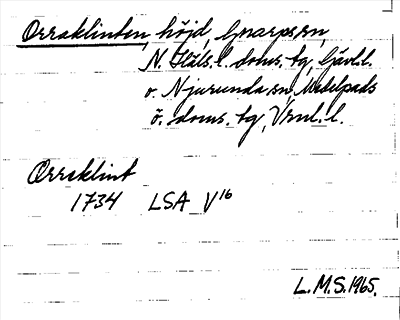 Orraklinten, höjd, Gnarps sn,
N. Häls. l. doms. tg, Gävl. l.
o. Njurunda sn, Medelpads
ö. doms. tg, Vrnl. l.
Orreklint
1734 LSA V16
L.M.S. 1965.